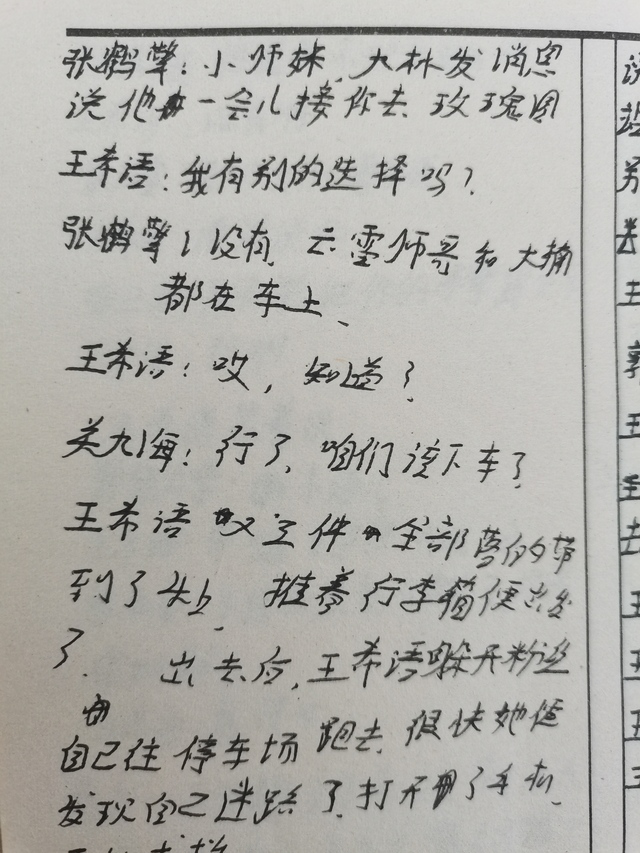 张鹤擎：小师妹，九林发消息
说他一会儿接你去玫瑰园
王希语：我有别的选择吗？
张鹤擎：没有，云雷师哥和大楠
都在车上、
王希语：哎，知道了
关九海：行了，咱们该下车了
王希语"三件"全部的带
到了头上，推着行李箱便出发
了．出去后，王希语躲开粉丝
自己往停车场跑去，很快她便
发现自己迷路了，打开了手机，